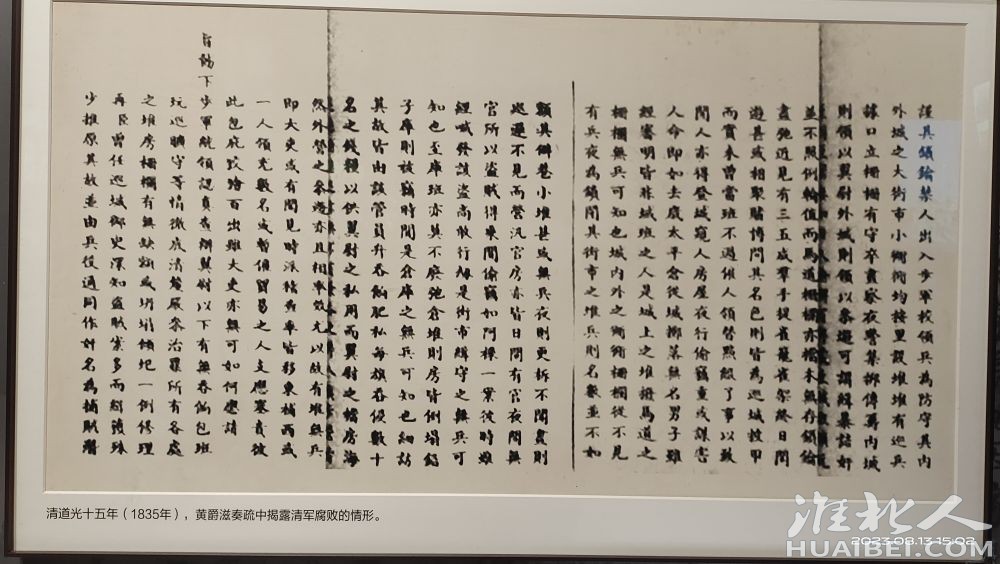 謹具鎖鑰禁人出入步軍校領兵為防守其內
外城之大街市小衚衕均按里設堆堆有巡兵
隘口立柵柵有守卒責察夜警禁挪傳籌內城
則領以翼尉外城則領以參遊可謂緝暴詰奸
並不照例輪值而馬道柵欄亦檔木無存鎖鑰
盡弛近見有三五成羣手提雀籠雀架終日閒
遊甚或相聚賭博問其名色則皆為巡城披甲
而實未曾當班不過倩人領替點綴了事以致
閒人亦得登城窺人房屋夜行偷竊重或謀害
人命即如去歲太平倉後城擲落無名男子雖
經審明皆非城班之人是城上之堆撥馬道之
柵欄無兵可知也城內外之衚衕柵欄從不見
有兵夜為鎖閉其街市之堆兵則名數並不如
額其僻巷小堆甚或無兵夜則更柝不聞晝則
巡邏不見而營汛官房亦皆日間有官夜間無
官所以盜賊得乘間偷竊如阿樺一案彼時雖
經喊發該盜尚敢行是街市緝守之無兵可
知也至庫班亦莫不廢弛倉堆則房皆倒塌餡
子庫則被竊時聞是倉庫之無兵可知也細訪
其故皆由該管員弁吞餉肥私每旗吞侵數十
名之錢糧以供翼尉之私用而翼尉之檔房海
然外營之參遊亦且相率效尤以故有堆無兵
即大吏或有聞見時派稽查率皆移東補西或
一人領充數名或暫僱貿易之人支應塞責彼
此包庇弊竇百出雖大吏亦無可如何應請
旨飭下步軍統領認真查辦翼尉以下有無吞餉包班
玩巡曠守等情徹底清釐嚴參治罪所有各處
之堆房柵欄有無缺額或坍塌傾圮一例修理
再臣曾任巡城御史深知盜賊案多而緝獲殊
少推原其故並由兵役通同作奸名為捕賊層
清道光十五年（1835年），黄爵滋奏疏中揭露清军腐败的情形。
淮北人
2023.08.13 15:02
HUAIBEI.COM